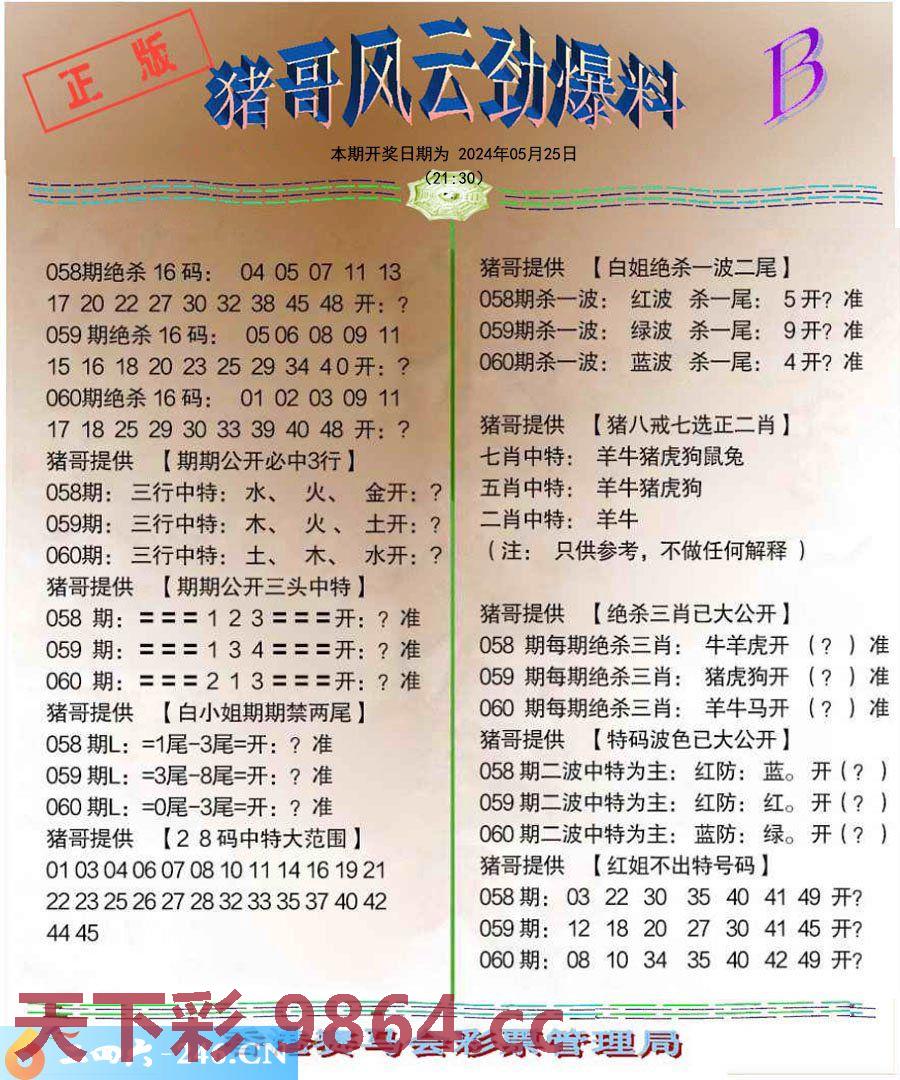 正版
猪哥风云劲爆料
B
本期开奖日期为 2024年05月25日
（21:30）
058期绝杀 16 码： 04 05 07 11 13
17 20 22 27 30 32 38 45 48 开：？
059 期绝杀 16 码： 05 06 08 09 11
15 16 18 20 23 25 29 34 40 开：？
060期绝杀 16 码： 01 02 03 09 11
17 18 25 29 30 33 39 40 48 开：？
猪哥提供 【期期公开必中3行】
058期：三行中特：水、 火、 金开：？
059期：三行中特：木、 火 、 土开：？
060期：三行中特：土、 木、 水开：？
猪哥提供 【期期公开三头中特】
058 期：＝＝＝ 1 2 3 ＝＝＝开：？准
059 期：＝＝＝ 1 3 4 ＝＝＝开：？准
060 期：＝＝＝ 2 1 3 ＝＝＝开：？准
猪哥提供 【白小姐期期禁两尾】
058 期L：=1尾-3尾=开：？准
059 期L：=3尾-8尾=开：？准
060 期L：=0尾-3尾=开：？准
猪哥提供 【２８码中特大范围】
01 03 04 06 07 08 10 11 14 16 19 21
22 23 25 26 27 28 32 33 35 37 40 42
44 45
猪哥提供 【白姐绝杀一波二尾】
058期杀一波： 红波 杀一尾： 5 开？准
059期杀一波： 绿波 杀一尾： 9 开？准
060期杀一波： 蓝波 杀一尾： 4 开？准
猪哥提供 【猪八戒七选正二肖】
七肖中特： 羊牛猪虎狗鼠兔
五肖中特： 羊牛猪虎狗
二肖中特： 羊牛
（注： 只供参考，不做任何解释 ）
猪哥提供 【绝杀三肖已大公开】
058 期每期绝杀三肖： 牛羊虎开 （？）准
059 期每期绝杀三肖： 猪虎狗开 （？）准
060 期每期绝杀三肖： 羊牛马开 （？）准
猪哥提供 【特码波色已大公开】
058 期二波中特为主：红防：蓝。开（？）
059 期二波中特为主：红防：红。开（？）
060 期二波中特为主：蓝防：绿。开（？）
猪哥提供 【红姐不出特号码】
058 期： 03 22 30 35 40 41 49 开?
059 期： 12 18 20 27 30 41 45 开?
060 期： 08 10 34 35 40 42 49 开?
天下彩 9864.cc
二四六-246.CN
赛马会彩票管理局